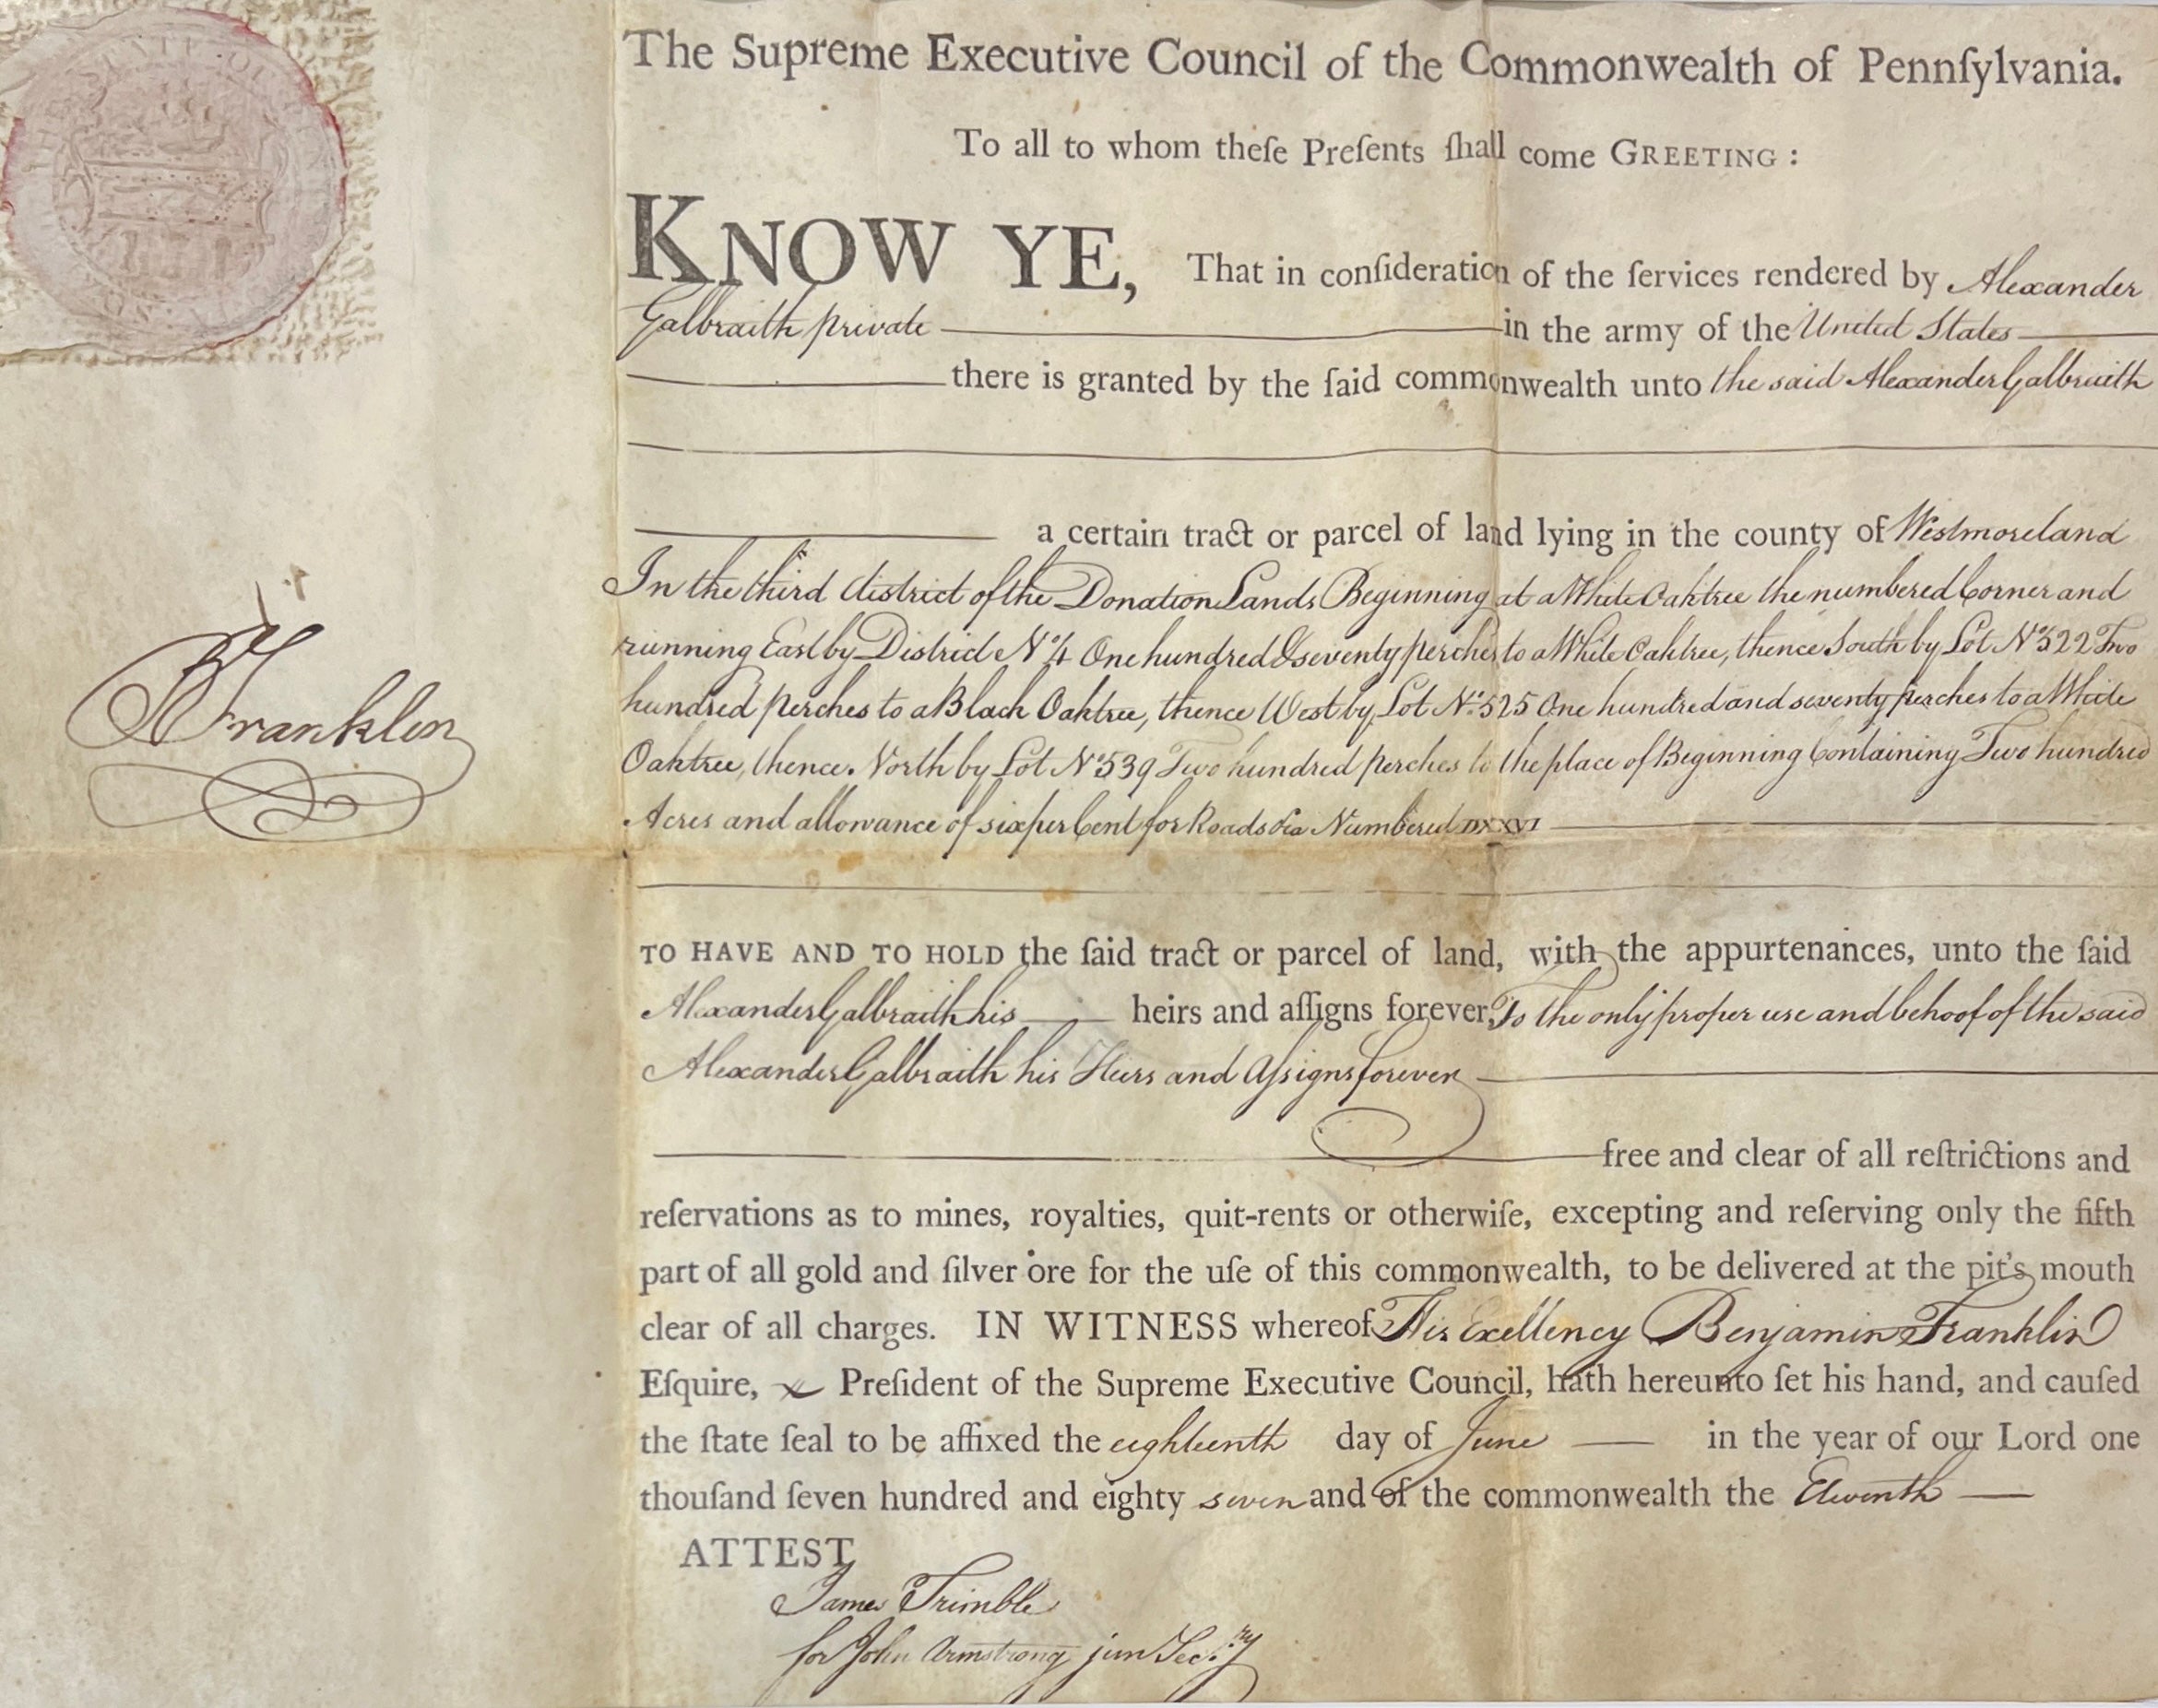 The Supreme Executive Council of the Commonwealth of Pennſylvania.
To all to whom theſe Preſents ſhall come GREETING :
KNOW YE, That in conſideration of the ſervices rendered by Alexander
Galbraith private in the army of the United States
there is granted by the ſaid commonwealth unto the said Alexander Galbraith
a certain tract or parcel of land lying in the county of Westmoreland
In the third district of the Donation Lands Beginning at a White Oaktree the numbered Corner and
running East by District No. 4 One hundred & seventy perches to a White Oaktree, thence South by Lot No. 522 Two
hundred perches to a Black Oaktree, thence West by Lot No. 525 One hundred and seventy perches to a White
Oaktree, thence North by Lot No. 539 Two hundred perches to the place of Beginning Containing Two hundred
Acres and allowance of six per Cent for Roads &ca Numbered DXXVI
TO HAVE AND TO HOLD the ſaid tract or parcel of land, with the appurtenances, unto the ſaid
Alexander Galbraith his heirs and aſſigns forever, To the only proper use and behoof of the said
Alexander Galbraith his Heirs and Aſsigns forever
free and clear of all reſtrictions and
reſervations as to mines, royalties, quit-rents or otherwiſe, excepting and reſerving only the fifth
part of all gold and ſilver ore for the uſe of this commonwealth, to be delivered at the pit's mouth
clear of all charges. IN WITNESS whereof His Exellency Benjamin Franklin
Eſquire, Preſident of the Supreme Executive Council, hath hereunto ſet his hand, and cauſed
the ſtate ſeal to be affixed the eighteenth day of June in the year of our Lord one
thouſand ſeven hundred and eighty seven and of the commonwealth the Eleventh
ATTEST
James Trimble
for John Armstrong jun Secry
B Franklin